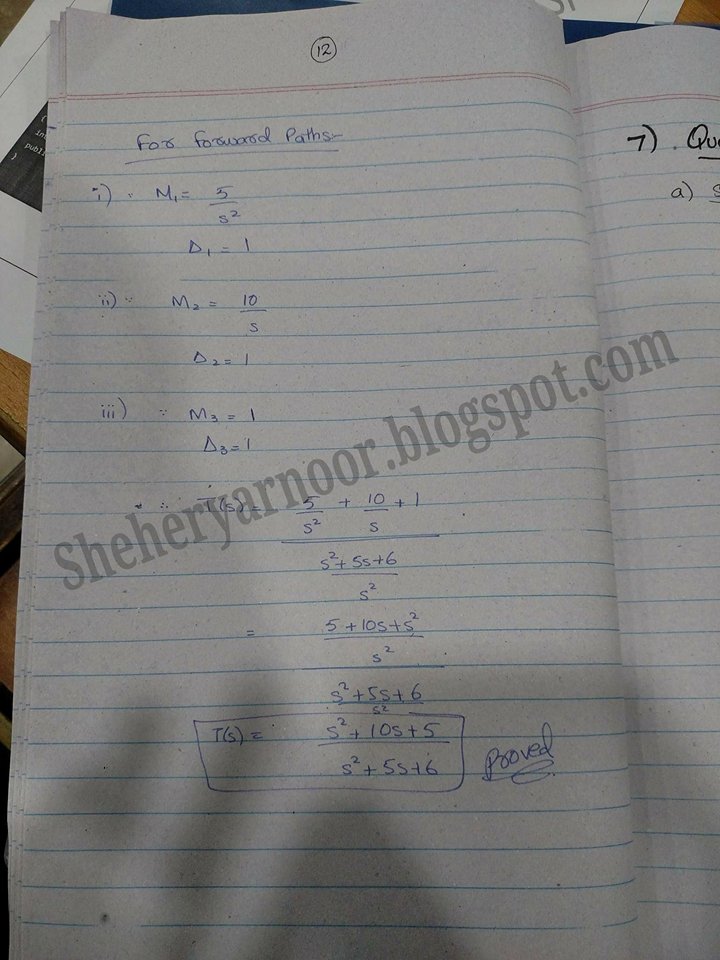 12
For Forward Paths:-
i) ∵ M₁ = 5/s²
Δ₁ = 1
ii) ∵ M₂ = 10/s
Δ₂ = 1
iii) ∵ M₃ = 1
Δ₃ = 1
∴ T(s) = (5/s² + 10/s + 1) / ((s² + 5s + 6)/s²)
= ((5 + 10s + s²)/s²) / ((s² + 5s + 6)/s²)
T(s) = (s² + 10s + 5)/(s² + 5s + 6) Proved
Sheheryarnoor.blogspot.com
7) Qu
a)
publi